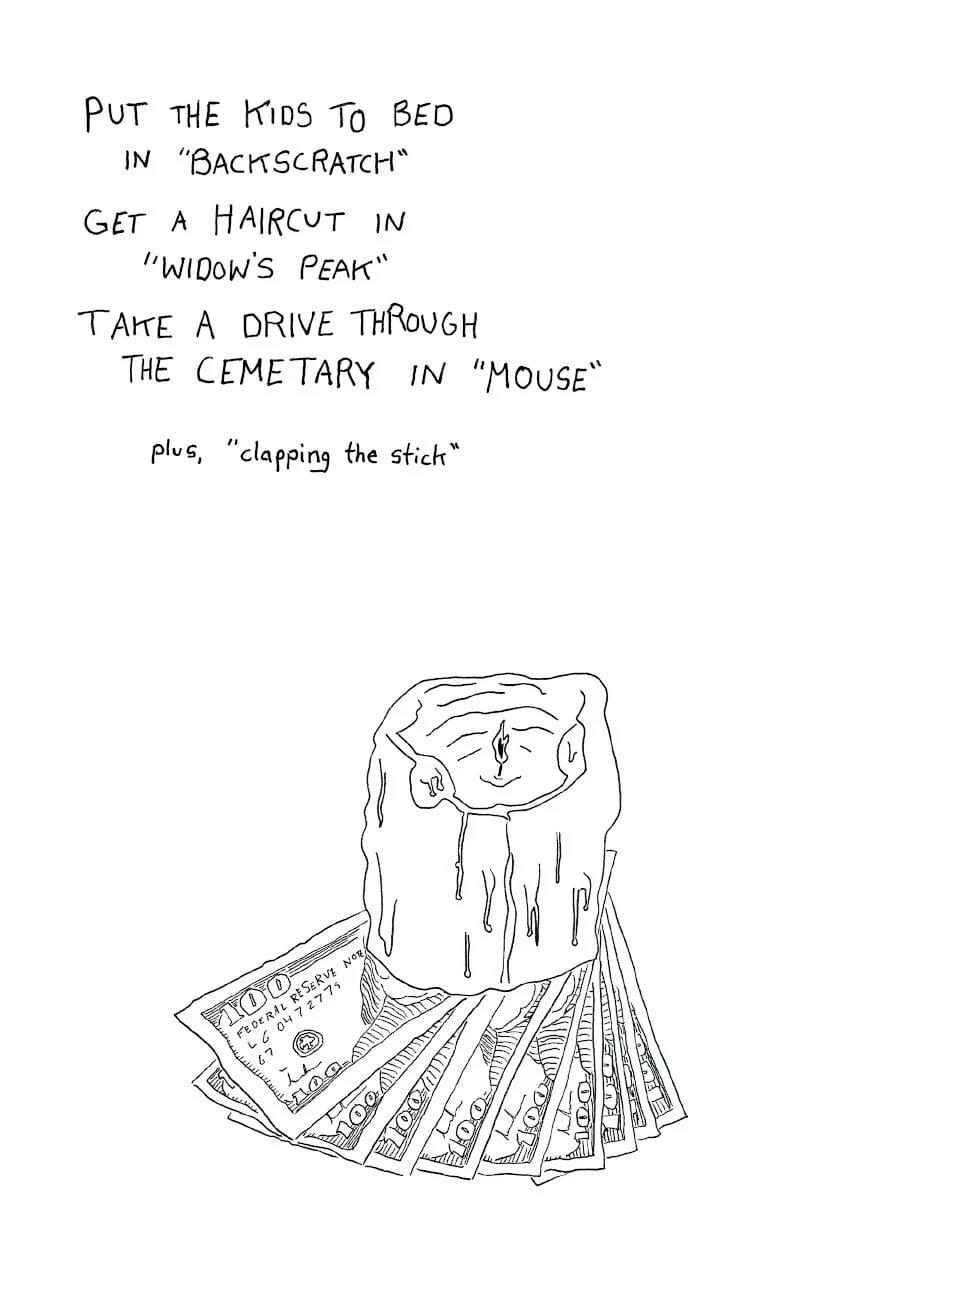 PUT THE KIDS TO BED
IN "BACKSCRATCH"
GET A HAIRCUT IN
"WIDOW'S PEAK"
TAKE A DRIVE THROUGH
THE CEMETARY IN "MOUSE"
plus, "clapping the stick"
100
FEDERAL RESERVE NOTE
L6 0472779
67
100
100
100
100
100
100